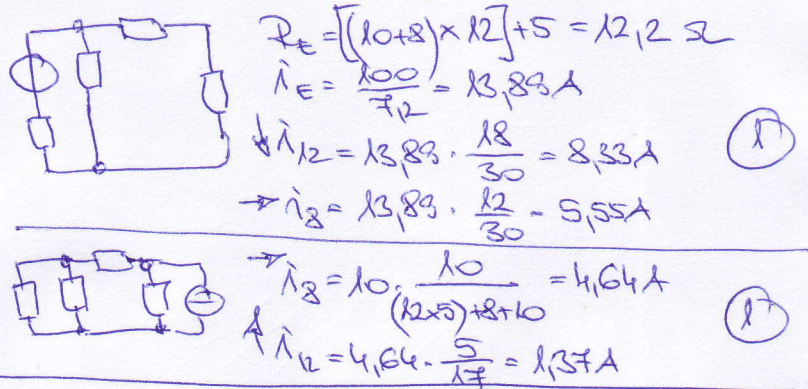 R_E = [(10+8) × 12] + 5 = 12,2 Ω
i_E = 100/7,2 = 13,89 A
↓ i_12 = 13,89 · 18/30 = 8,33 A
→ i_8 = 13,89 · 12/30 = 5,55 A
1p
→ i_8 = 10 · 10/((12×5)+8+10) = 4,64 A
↑ i_12 = 4,64 · 5/17 = 1,37 A
1p